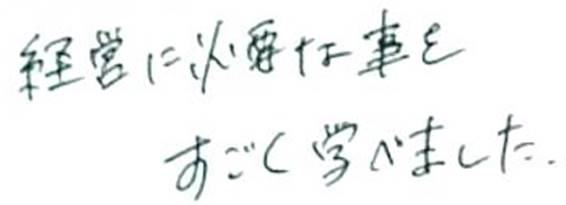 経営に必要な事を
すごく学べました.